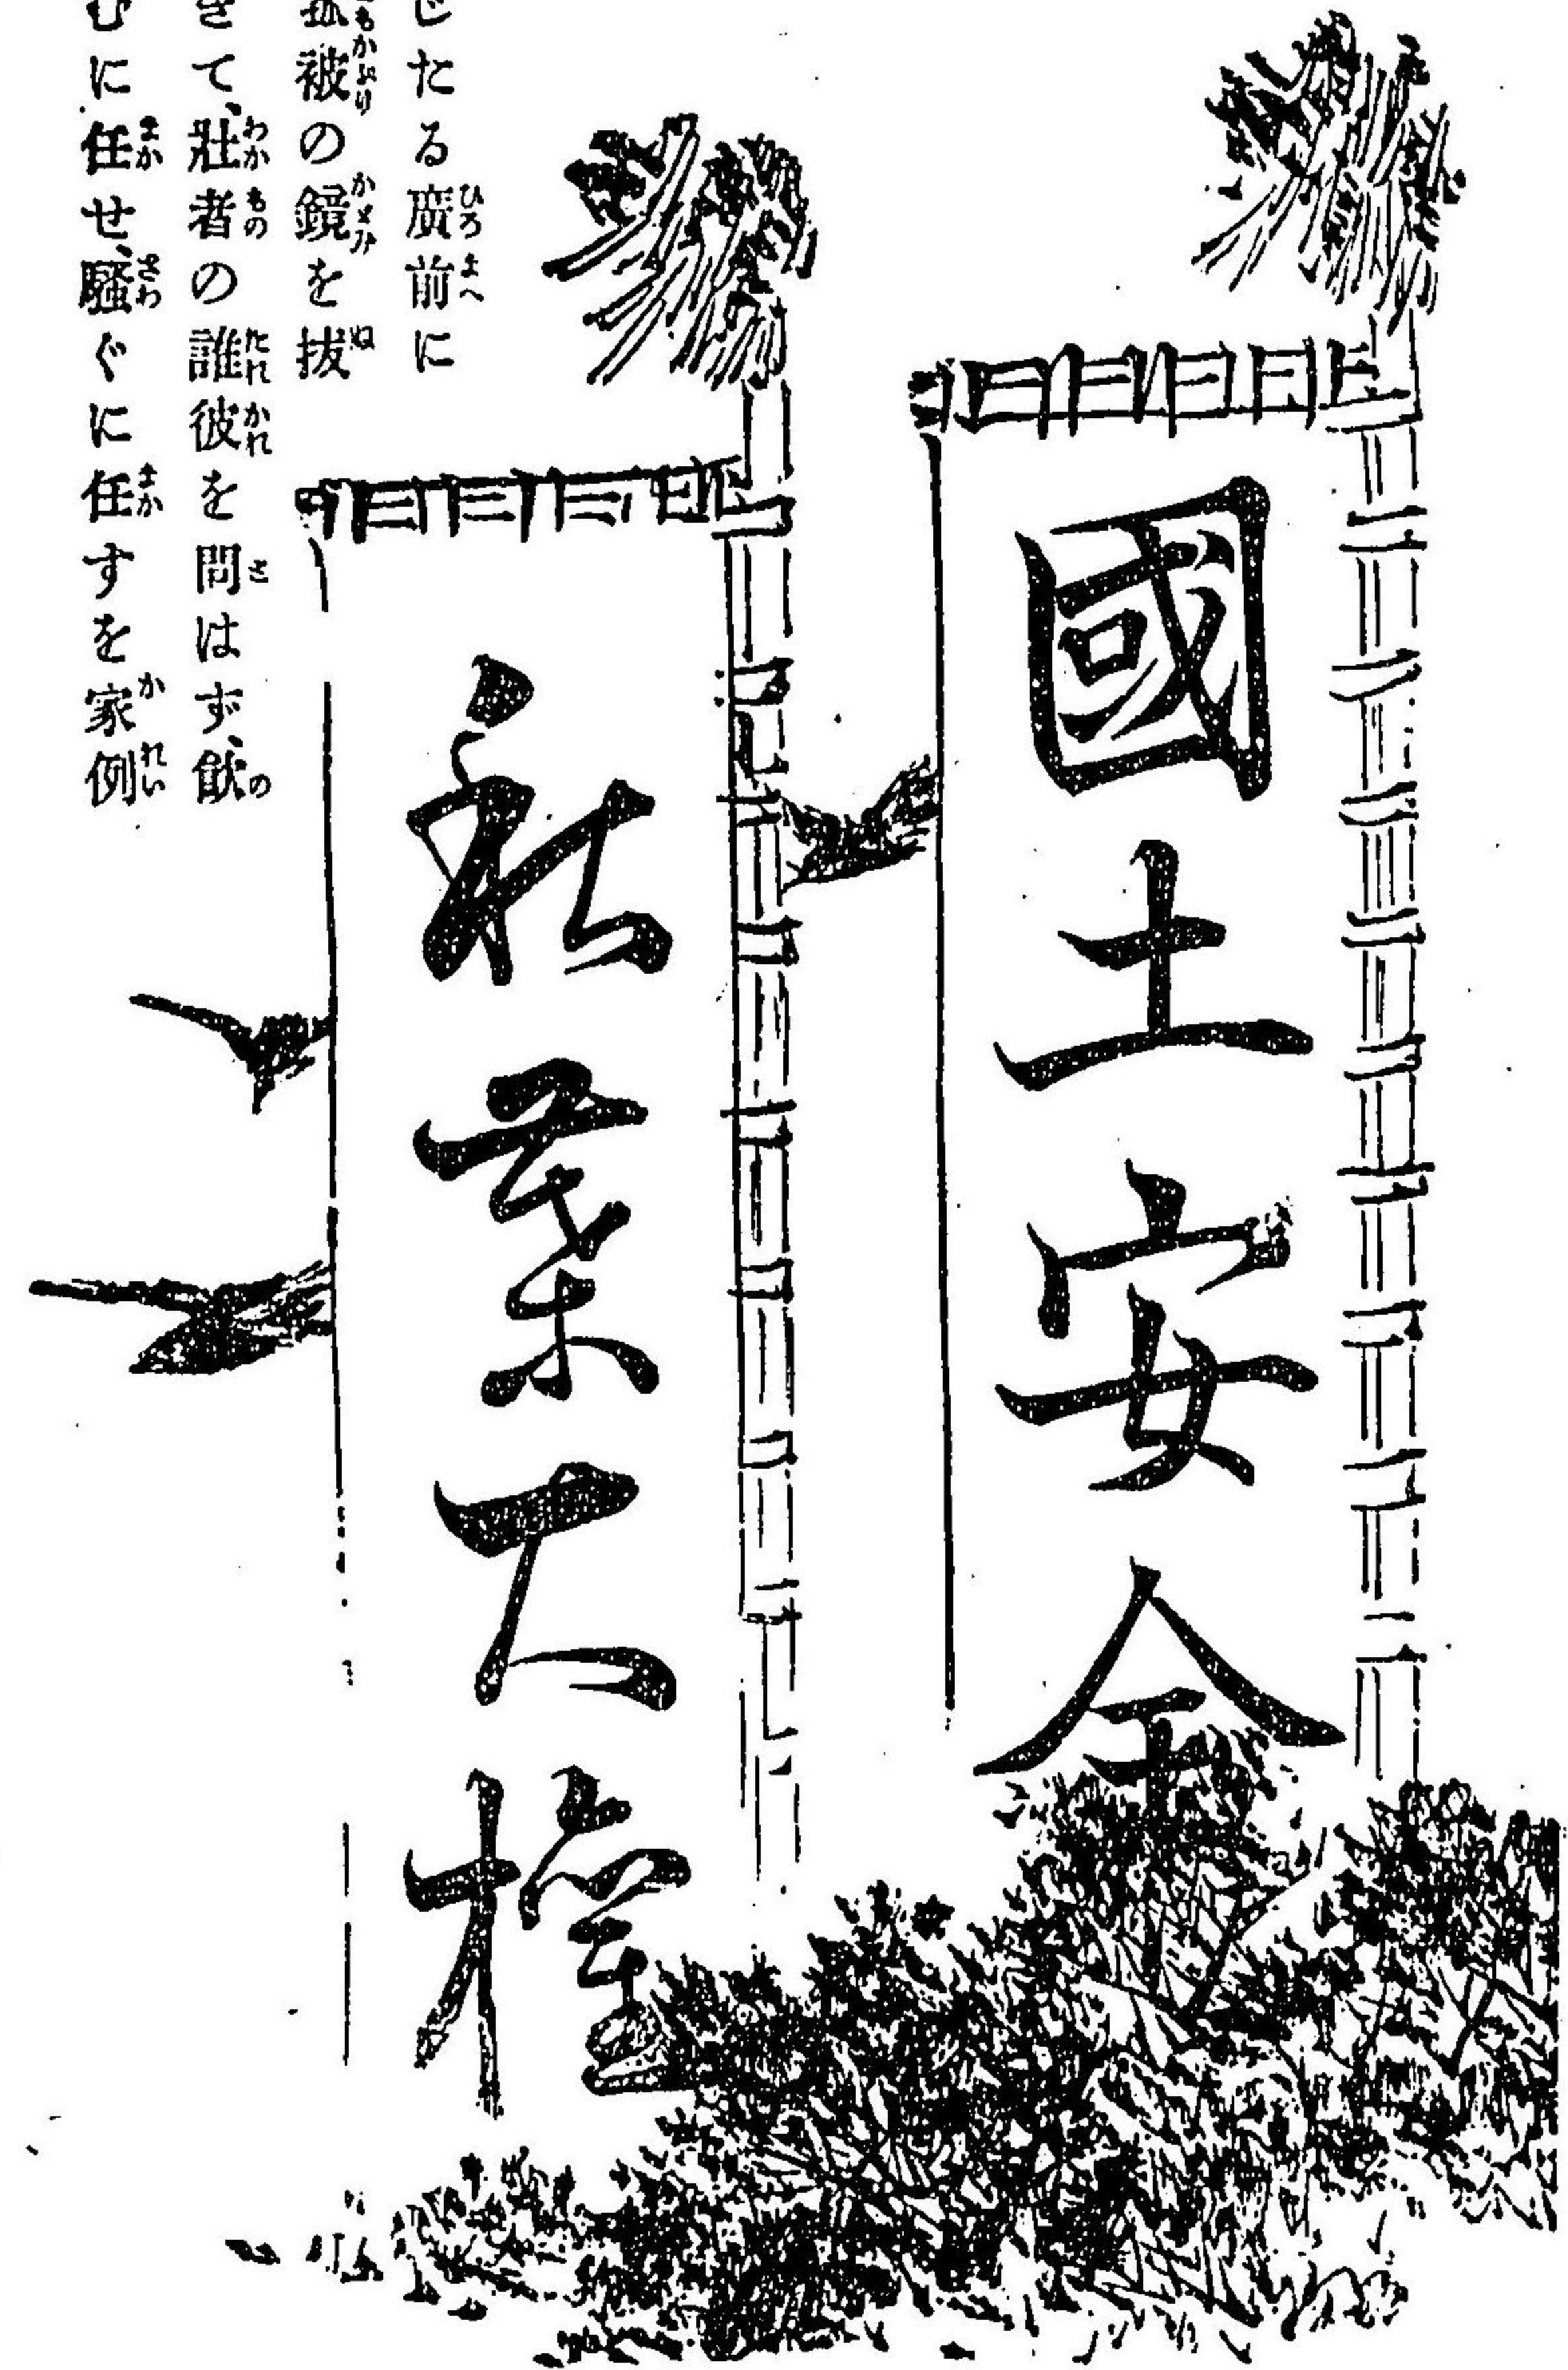 國土安全
秋葉大權
じたる廣前に
菰被の鏡を拔
きて、壯者の誰彼を問はず、飮
むに任せ、騷ぐに任すを家例